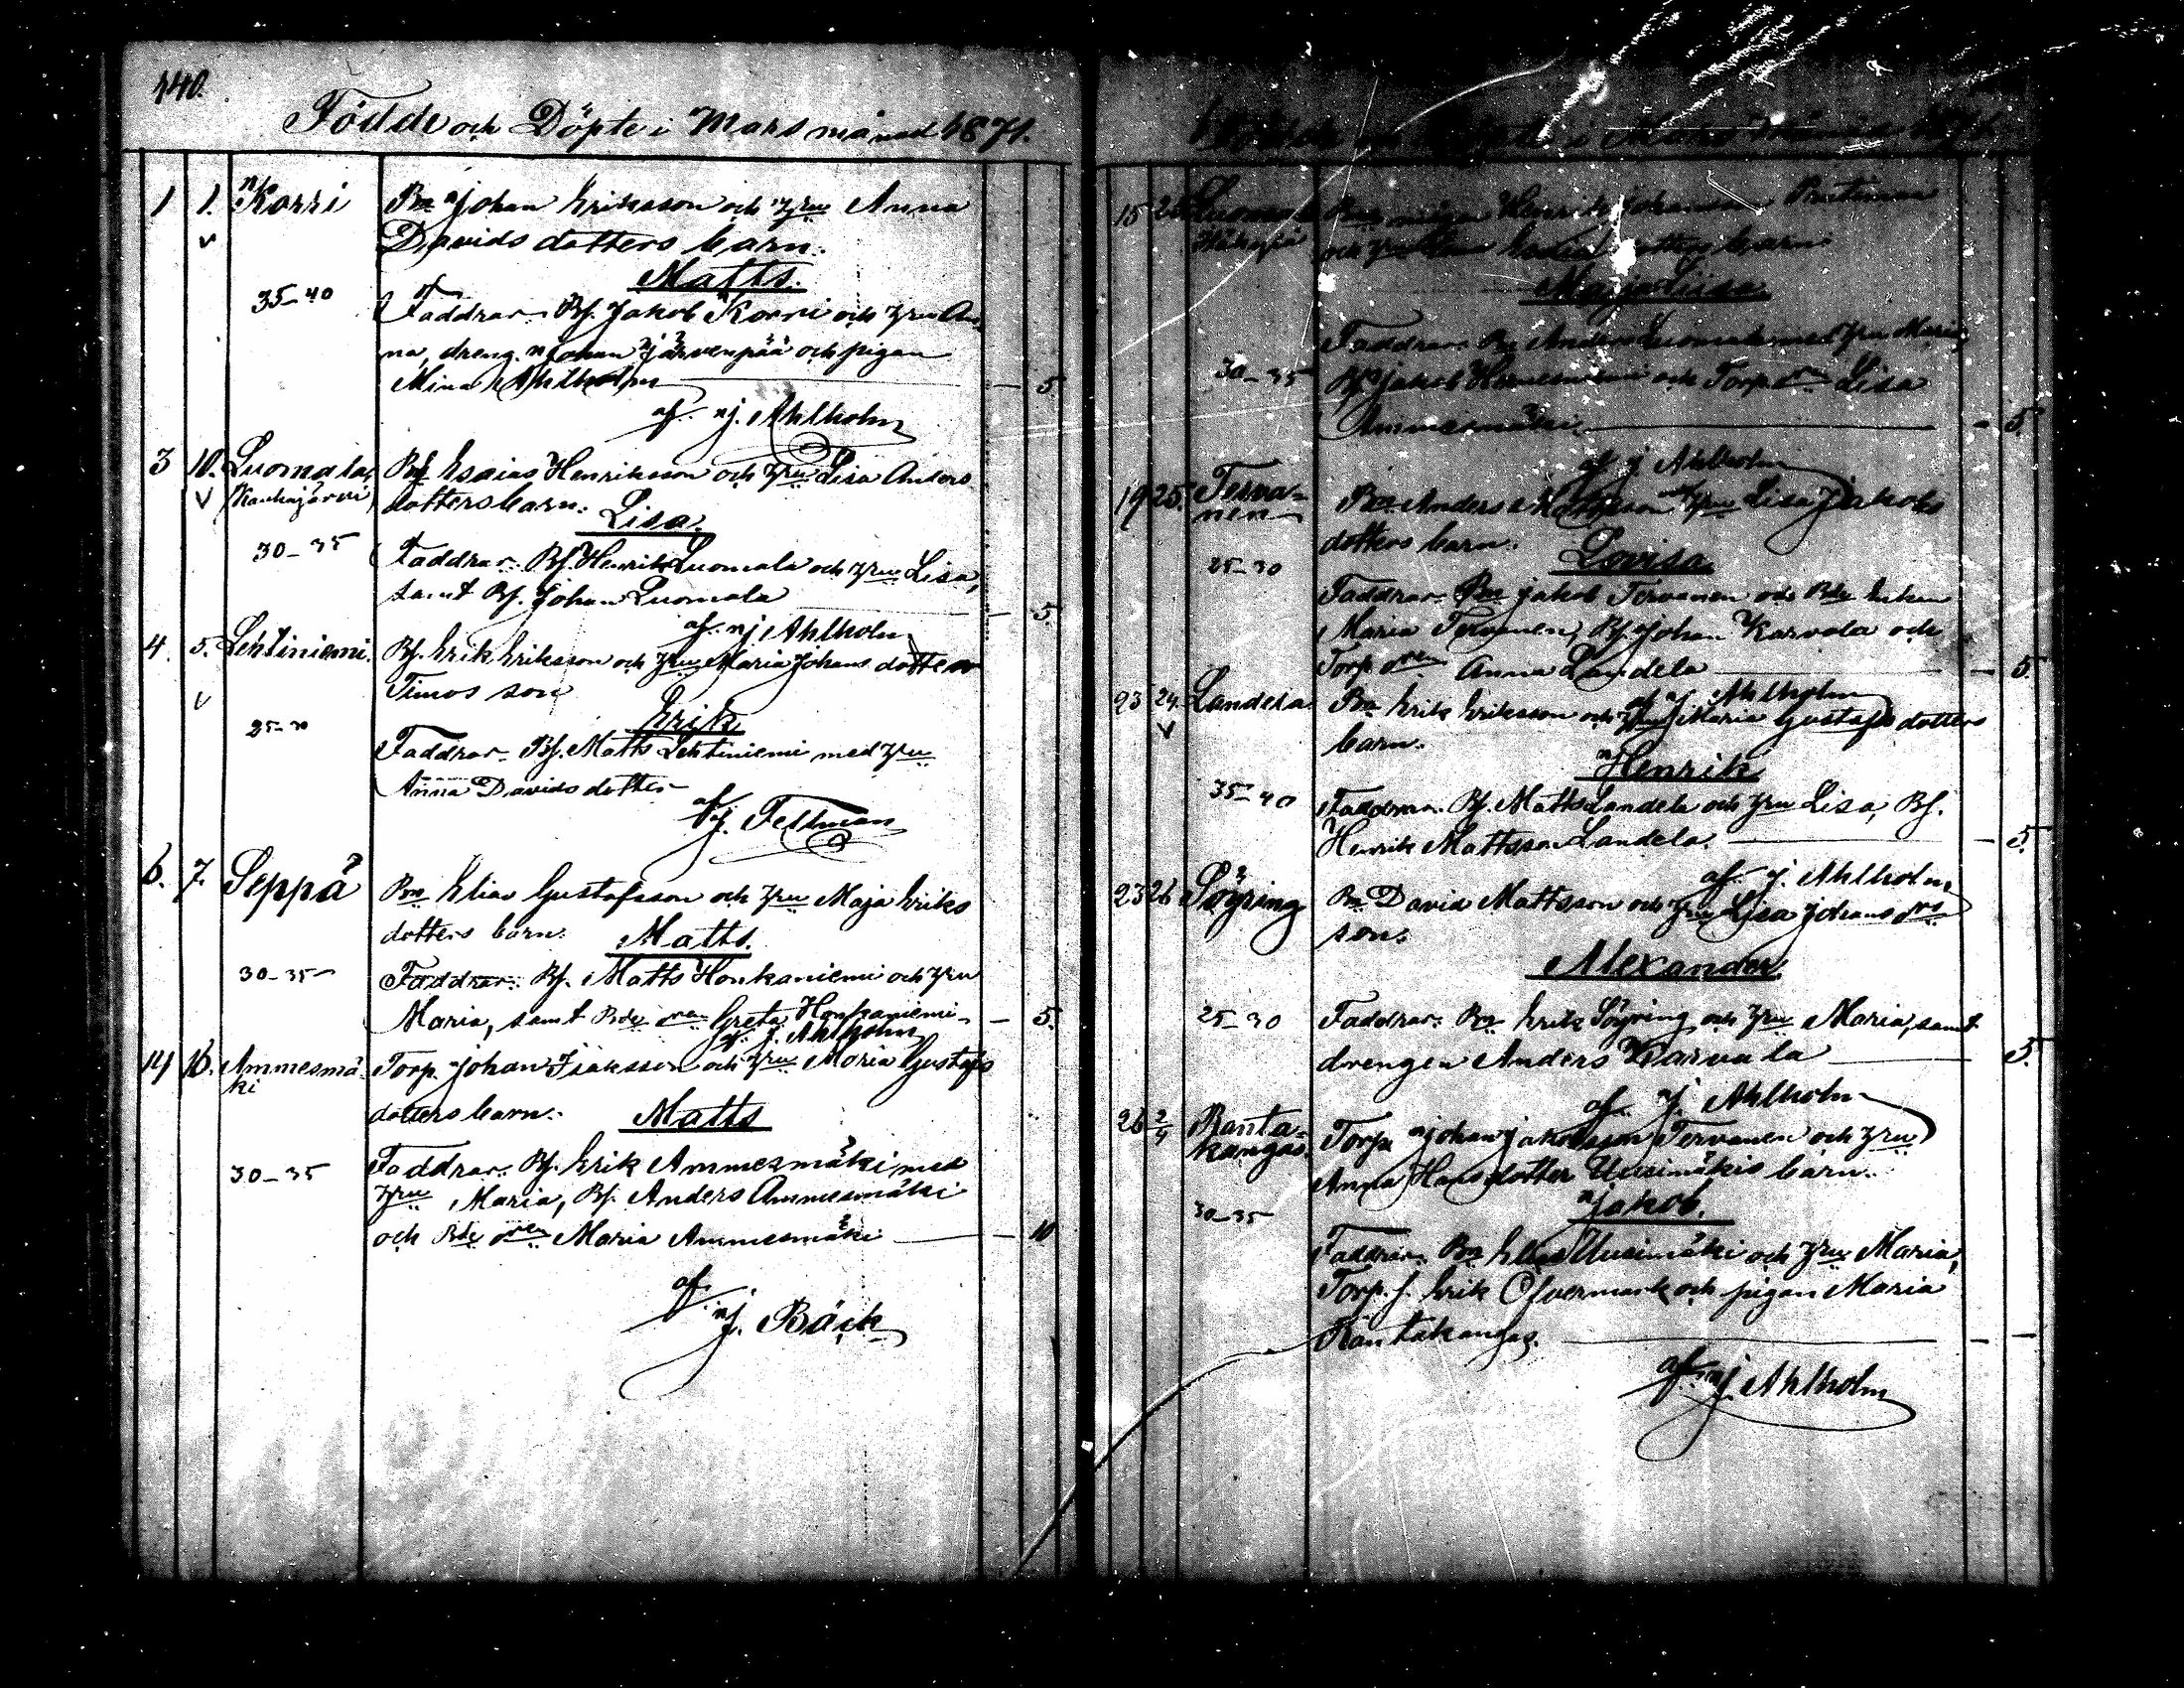 140.
Födde och Döpte i Mars månad 1871.
1 1. Korri Bn Johan Eriksson och hru Anna
Davids dotters barn.
Matts.
35-40 Faddrar: Bs. Jakob Korri och hru An-
na, dreng. Johan Järvenpää och pigan
Mina Ahlholm — 5.
af J. Ahlholm
3 10. Luomala, Bs Esaias Henriksson och hru Lisa Anders
(Kauhajärvi) dotters barn.
Lisa.
30-35 Faddrar: Bs. Henrik Luomala och hru Lisa,
samt Bs. Johan Luomala — 5.
af J. Ahlholm
4. 5. Lehtiniemi. Bs. Erik Eriksson och hru Maria Johans dotter
Timos son
Erik
25-30
Faddrar: Bs. Matts Lehtiniemi med hru
Anna Davids dotter
af J. Fellman
6. 7. Seppä Bn Elias Gustafsson och hru Maja Eriks
dotters barn. Matts.
30-35 Faddrar: Bs. Matts Honkaniemi och hru
Maria, samt Bde dren Greta Honkaniemi — 5.
af J. Ahlholm
14 16. Ammesmä- Torp. Johan Isaksson och hru Maria Gustafs
ki
dotters barn. Matts
30-35 Faddrar: Bs. Erik Ammesmäki med
hru Maria, Bs. Anders Ammesmäki
och Bde dren Maria Ammesmäki — 10
af
J. Bäck
i Mars
15 Luomala Henrik Johansson
och hru barn
Maja Lisa
Faddrar: Bn Anders Luomala med hru Maria,
30-35 Bs Jakob och Torp dren Lisa
Ammesmäki — 5.
af J Ahlholm
19 25. Terva- Bn Anders och hru Lisa Jakobs
nen
dotters barn. Lovisa.
25-30
Faddrar: Bn Jakob Tervanen och Bde Enkan
Maria Tervanen, Bs. Johan Karvala och
Torp dren Anna Landela — 5.
af J. Ahlholm
23 24. Landela Bn Erik Eriksson och hru Maria Gustafs dotters
barn.
Henrik
35-40 Faddrar: Bs. Matts Landela och hru Lisa, Bs.
Henrik Mattsson Landela. — 5.
af J. Ahlholm
23 26 Söyring Bn David Mattsson och hru Lisa Johans drs
son.
Alexander.
25-30 Faddrar: Bn Erik Söyring och hru Maria, samt
drengen Anders Karvala — 5.
af J. Ahlholm
26 2/4 Ranta- Torp. Johan Jakobsson Tervanen och hru
kangas. Anna Hans dotter Uusimäkis barn.
30-35 Jakob.
Faddrar: Bn Elias Uusimäki och hru Maria,
Torp. s. Erik Öfvermark och pigan Maria
Rantakangas. — —
af J. Ahlholm